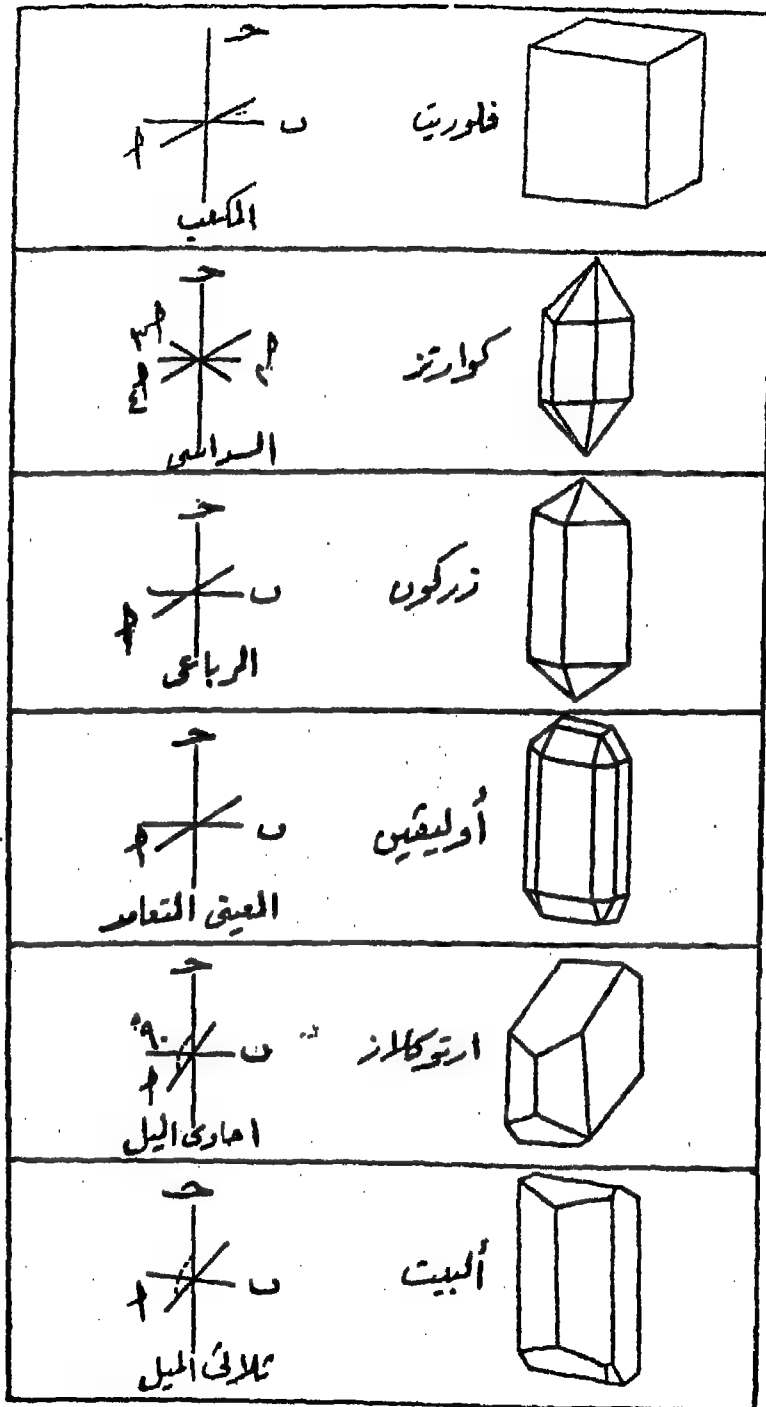 فلوريت
حـ
ب
أ
المكعب
كوارتز
حـ
السداسى
زركون
حـ
ب
أ
الرباعى
أوليڤين
حـ
ب
أ
المعينى المتعامد
ارتوكلاز
حـ
٩٠°
ب
أ
احادى الميل
ألبيت
حـ
ب
أ
ثلاثى الميل